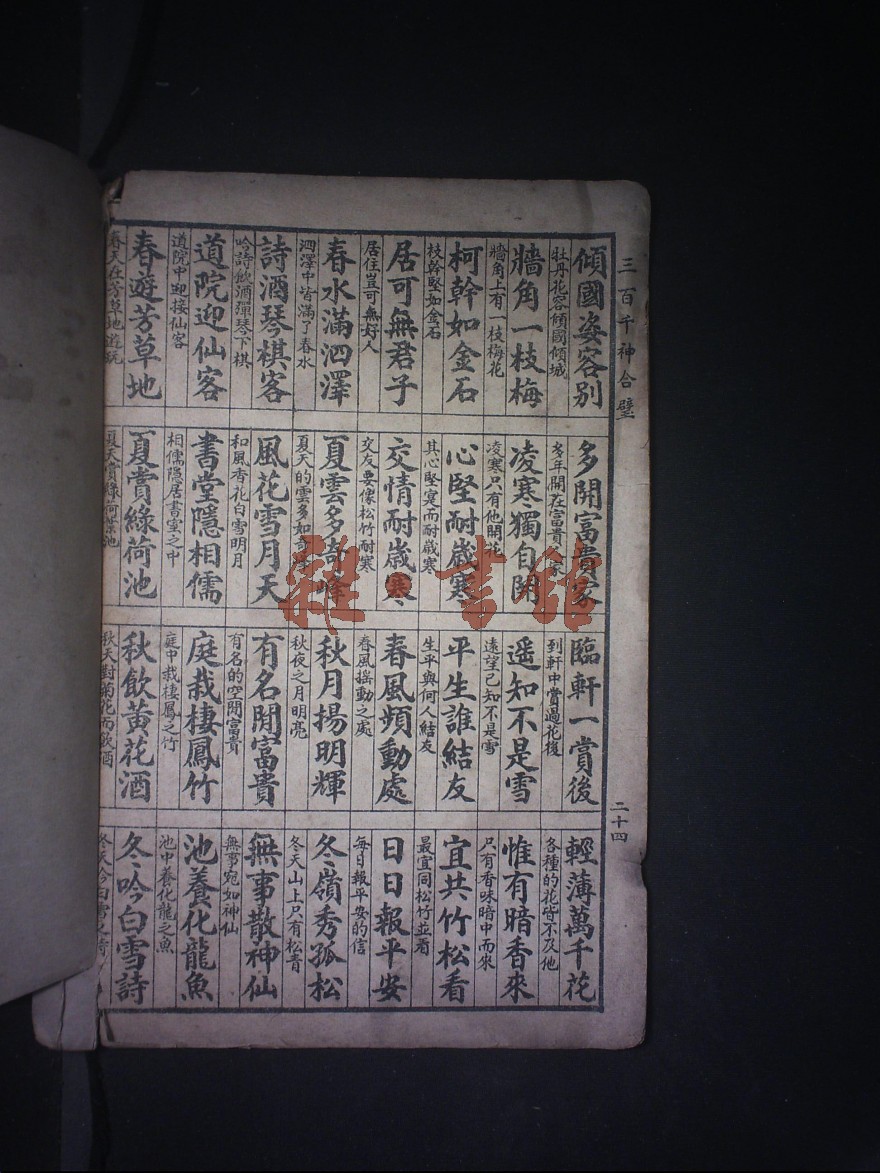 三百千神合璧
傾國姿容別
牡丹花容傾國傾城
多開富貴家
多年開在富貴人家
臨軒一賞後
到軒中賞過花後
輕薄萬千花
各種的花皆不及他
牆角一枝梅
牆角上有一枝梅花
凌寒獨自開
凌寒只有他開花
遥知不是雪
遠望已知不是雪
惟有暗香來
只有香味暗中而來
柯幹如金石
枝幹堅如金石
心堅耐歲寒
其心堅寔而耐歲寒
平生誰結友
生平與何人結友
宜共竹松看
最宜同松竹並看
居可無君子
居住豈可無好人
交情耐歲寒
交友要像松竹耐寒
春風頻動處
春風搖動之處
日日報平安
每日報平安的信
春水滿泗澤
泗澤中皆滿了春水
夏雲多奇峰
夏天的雲多如奇峰
秋月揚明輝
秋夜之月明亮
冬嶺秀孤松
冬天山上只有松青
詩酒琴棋客
吟詩飲酒彈琴下棋
風花雪月天
和風香花白雪明月
有名閒富貴
有名的空閒富貴
無事散神仙
無事宛如神仙
道院迎仙客
道院中迎接仙客
書堂隱相儒
相儒隱居書室之中
庭栽棲鳳竹
庭中栽棲鳳之竹
池養化龍魚
池中養化龍之魚
春遊芳草地
春天在芳草地遊玩
夏賞綠荷池
夏天賞綠荷葉池
秋飲黃花酒
秋天對菊花而飲酒
冬吟白雪詩
冬天吟白雪之詩
二十四
雜·書館